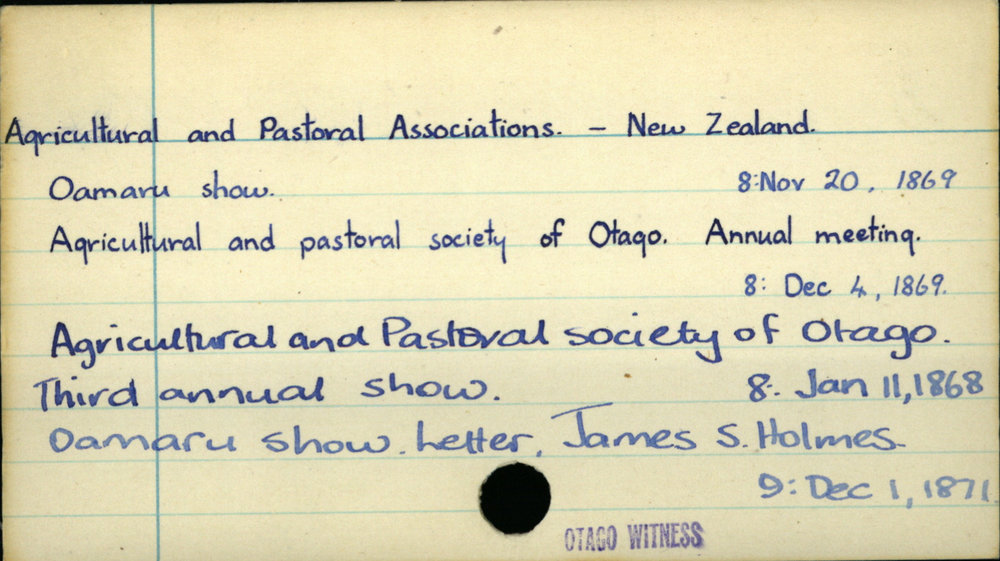 Agricultural and Pastoral Associations. – New Zealand.
Oamaru show. 8:Nov 20, 1869
Agricultural and pastoral society of Otago. Annual meeting.
8: Dec 4, 1869.
Agricultural and Pastoral society of Otago.
Third annual show. 8: Jan 11, 1868
Oamaru show. Letter, James S. Holmes.
9: Dec 1, 1871.
OTAGO WITNESS